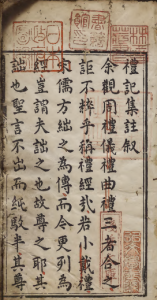 禮記集註敘
余觀周禮儀禮曲禮三者合之
詎不粹乎稱禮經哉若小戴禮
宋儒方詘之為傳而今更列為
經豈謂夫詘之也故尊之耶其
詘也聖言不出而紕駁半其尊